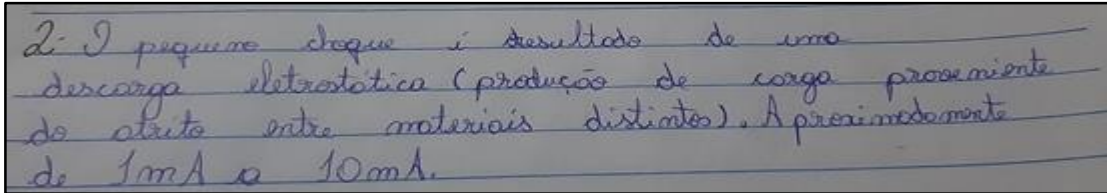 2- O pequeno choque é resultado de uma
descarga eletrostática (produção de carga proveniente
do atrito entre materiais distintos). Aproximadamente
de 1mA a 10mA.